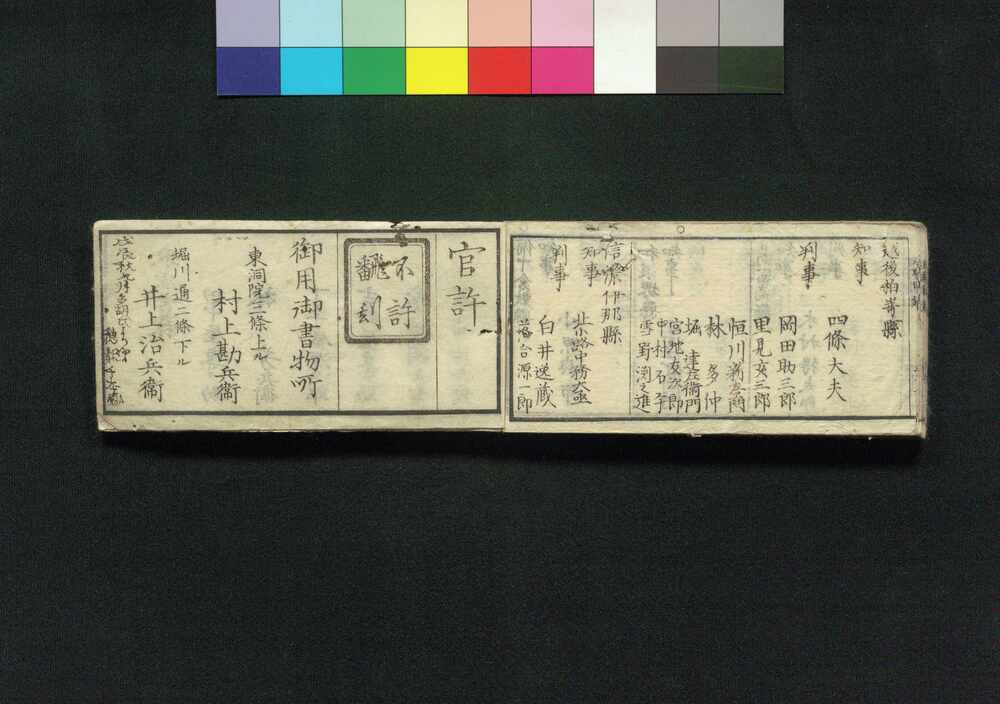 越後柏崎縣
知事
四條大夫
判事
岡田助三郎
里見亥三郎
恒川新左衛門
林多仲
堀達左衛門
宮地友次郎
中村石平
雪野渕之進
信濃伊那縣
知事
北小路中務大丞
判事
白井逸蔵
落合源一郎
官許
不許
翻刻
御用御書物所
東洞院三條上ル
村上勘兵衛
堀川通二條下ル
井上治兵衛